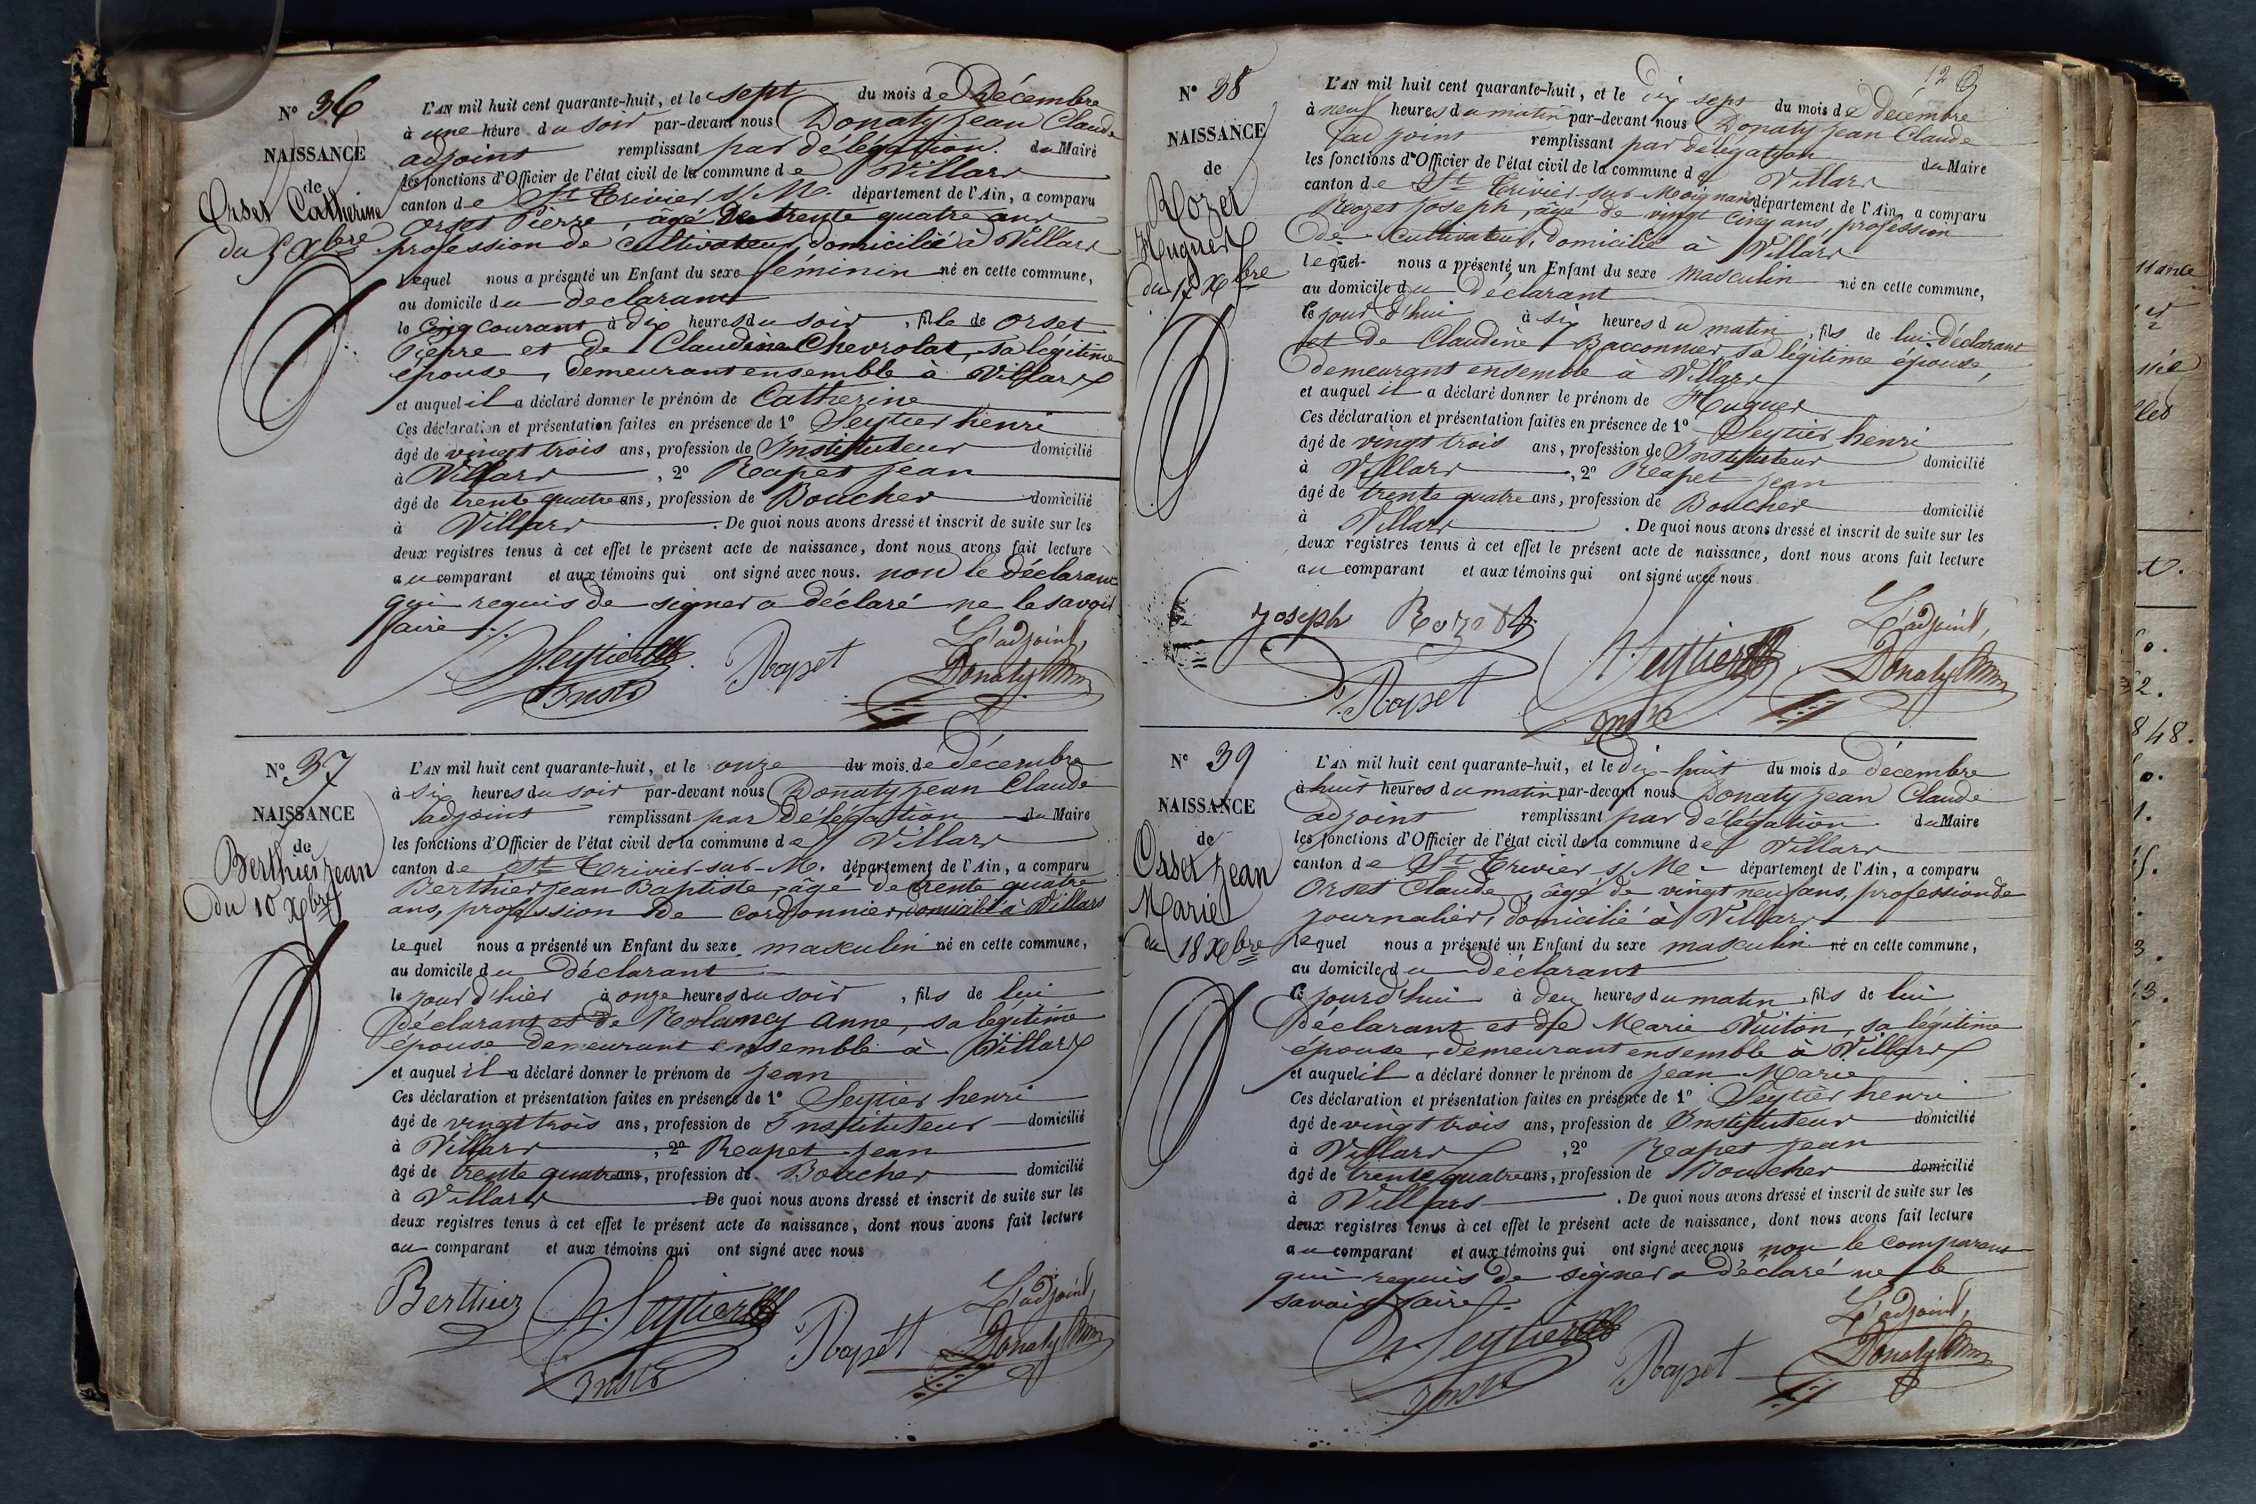 N° 36
NAISSANCE
de
Orset Catherine
du 5 Xbre
L'AN mil huit cent quarante-huit, et le sept du mois de Décembre
à une heure du soir par-devant nous Donaty Jean Claude
adjoint remplissant par délégation du Maire
les fonctions d'Officier de l'état civil de la commune de Villars
canton de St Trivier s/ M. département de l'Ain, a comparu
Orset Pierre, âgé de trente quatre ans
profession de cultivateur, domicilié à Villars
lequel nous a présenté un Enfant du sexe féminin né en cette commune,
au domicile du déclarant
le cinq courant à dix heures du soir, fille de Orset
Pierre et de Claudine Chevrolat, sa légitime
épouse, demeurant ensemble à Villars
et auquel il a déclaré donner le prénom de Catherine
Ces déclaration et présentation faites en présence de 1° Seytier henri
âgé de vingt trois ans, profession de Instituteur domicilié
à Villars, 2° Rapet Jean
âgé de trente quatre ans, profession de Boucher domicilié
à Villars. De quoi nous avons dressé et inscrit de suite sur les
deux registres tenus à cet effet le présent acte de naissance, dont nous avons fait lecture
au comparant et aux témoins qui ont signé avec nous. non le déclarant
qui requis de signer a déclaré ne le savoir
faire.
Seytier Rapet L'adjoint,
Instr Donaty
N° 37
NAISSANCE
de
Berthier Jean
du 10 Xbre
L'AN mil huit cent quarante-huit, et le onze du mois de décembre
à six heures du soir par-devant nous Donaty Jean Claude
adjoint remplissant par délégation du Maire
les fonctions d'Officier de l'état civil de la commune de Villars
canton de St Trivier-sur-M. département de l'Ain, a comparu
Berthier Jean Baptiste, âgé de trente quatre
ans, profession de cordonnier, domicilié à Villars
lequel nous a présenté un Enfant du sexe masculin né en cette commune,
au domicile du déclarant
le jour d'hier à onze heures du soir, fils de lui
déclarant et de Anne, sa légitime
épouse demeurant ensemble à Villars
et auquel il a déclaré donner le prénom de Jean
Ces déclaration et présentation faites en présence de 1° Seytier henri
âgé de vingt trois ans, profession de Instituteur domicilié
à Villars, 2° Rapet Jean
âgé de trente quatre ans, profession de Boucher domicilié
à Villars De quoi nous avons dressé et inscrit de suite sur les
deux registres tenus à cet effet le présent acte de naissance, dont nous avons fait lecture
au comparant et aux témoins qui ont signé avec nous
Berthier Seytier Rapet L'adjoint,
Instr Donaty
N° 38
NAISSANCE
de
Rozet
Huguer
du 17 Xbre
L'AN mil huit cent quarante-huit, et le dix sept du mois de décembre
à neuf heures du matin par-devant nous Donaty Jean Claude
adjoint remplissant par délégation du Maire
les fonctions d'Officier de l'état civil de la commune de Villars
canton de St Trivier sur Moignans département de l'Ain, a comparu
Rozet Joseph, âgé de vingt cinq ans, profession
de cultivateur, domicilié à Villars
lequel nous a présenté un Enfant du sexe masculin né en cette commune,
au domicile du déclarant
le jour d'hui à six heures du matin, fils de lui déclarant
et de Claudine Bacconnier, sa légitime épouse,
demeurant ensemble à Villars
et auquel il a déclaré donner le prénom de Huguer
Ces déclaration et présentation faites en présence de 1° Seytier henri
âgé de vingt trois ans, profession de Instituteur domicilié
à Villars, 2° Rapet Jean
âgé de trente quatre ans, profession de Boucher domicilié
à Villars. De quoi nous avons dressé et inscrit de suite sur les
deux registres tenus à cet effet le présent acte de naissance, dont nous avons fait lecture
au comparant et aux témoins qui ont signé avec nous
Joseph Rozet Seytier L'adjoint,
Rapet Instr Donaty
N° 39
NAISSANCE
de
Orset Jean
Marie
du 18 Xbre
L'AN mil huit cent quarante-huit, et le dix-huit du mois de décembre
à huit heures du matin par-devant nous Donaty Jean Claude
adjoint remplissant par délégation du Maire
les fonctions d'Officier de l'état civil de la commune de Villars
canton de St Trivier s/ M. département de l'Ain, a comparu
Orset Claude, âgé de vingt neuf ans, profession de
journalier, domicilié à Villars
lequel nous a présenté un Enfant du sexe masculin né en cette commune,
au domicile du déclarant
le jourd'hui à deux heures du matin, fils de lui
déclarant et de Marie Vuiton, sa légitime
épouse, demeurant ensemble à Villars
et auquel il a déclaré donner le prénom de Jean Marie
Ces déclaration et présentation faites en présence de 1° Seytier henri
âgé de vingt trois ans, profession de Instituteur domicilié
à Villars, 2° Rapet Jean
âgé de trente quatre ans, profession de Boucher domicilié
à Villars. De quoi nous avons dressé et inscrit de suite sur les
deux registres tenus à cet effet le présent acte de naissance, dont nous avons fait lecture
au comparant et aux témoins qui ont signé avec nous non le comparant
qui requis de signer a déclaré ne le
savoir faire.
Seytier Rapet L'adjoint,
Instr Donaty